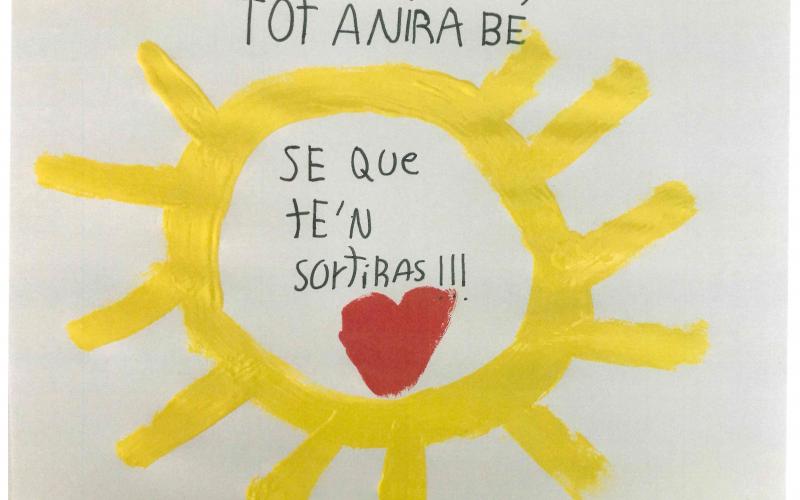 TOT ANIRA BÉ
SE QUE
TE'N
SORTIRAS !!!